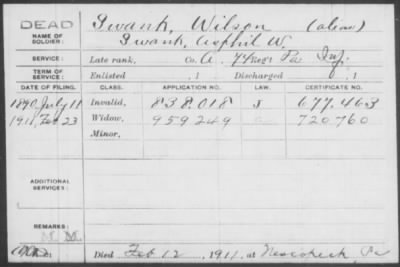 DEAD
NAME OF SOLDIER: Swank, Wilson (alias)
Swank, Asphil W.
SERVICE: Late rank, Co. A, 74 Reg't Pa Inf.
TERM OF SERVICE: Enlisted , 1 Discharged , 1
DATE OF FILING. CLASS. APPLICATION NO. LAW. CERTIFICATE NO.
1890 July 11 Invalid, 838.018 J 677.463
1911, Feb 23 Widow, 959249 720760
Minor,
ADDITIONAL SERVICES:
REMARKS:
Died Feb 12, 1911, at Nescopeck, Pa